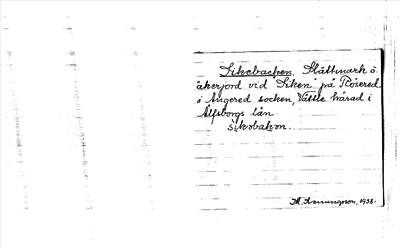 Sikebacken, Slåttmark o
åkerjord vid "Siken" på Rösered
i Angered socken, Vättle härad i
Älfsborgs län.
sikəbakən.
M. Asmundson, 1938.